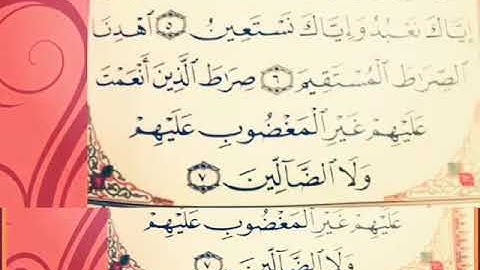 إِيَّاكَ نَعْبُدُ وَإِيَّاكَ نَسْتَعِينُ ۝٥ ٱهْدِنَا
ٱلصِّرَٰطَ ٱلْمُسْتَقِيمَ ۝٦ صِرَٰطَ ٱلَّذِينَ أَنْعَمْتَ
عَلَيْهِمْ غَيْرِ ٱلْمَغْضُوبِ عَلَيْهِمْ
وَلَا ٱلضَّآلِّينَ ۝٧
عَلَيْهِمْ غَيْرِ ٱلْمَغْضُوبِ عَلَيْهِمْ
وَلَا ٱلضَّآلِّينَ ۝٧